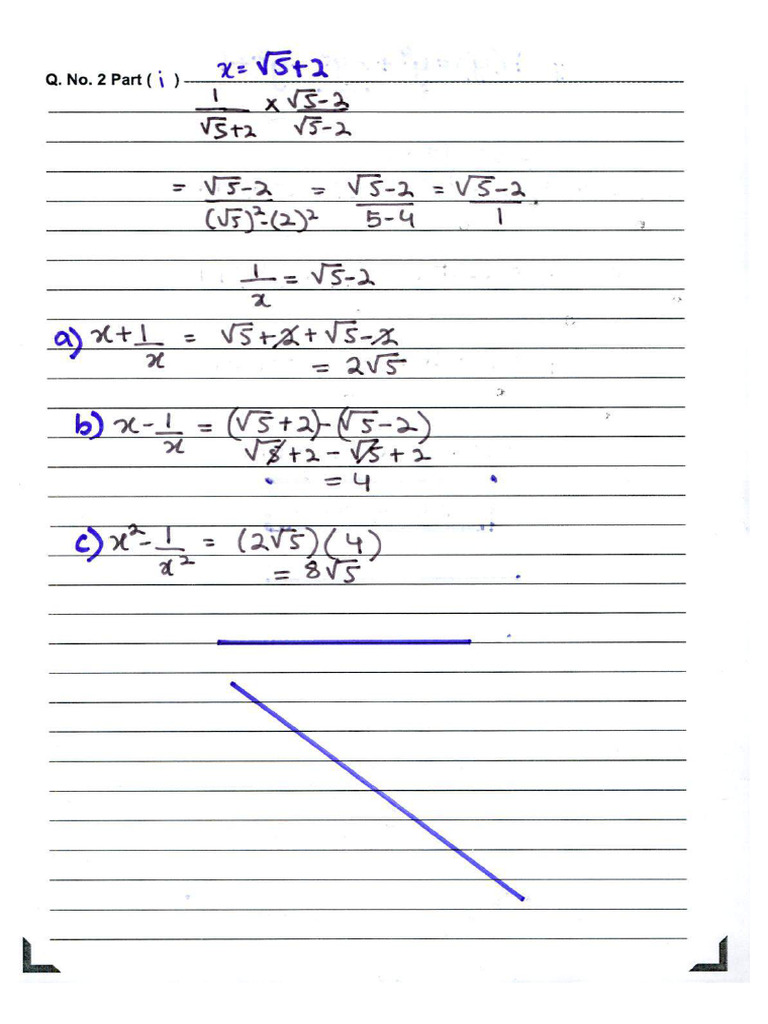 Q. No. 2 Part ( i ) x = √5 + 2
1/(√5+2) × (√5-2)/(√5-2)
= (√5-2)/((√5)²-(2)²) = (√5-2)/(5-4) = (√5-2)/1.
1/x = √5-2
a) x + 1/x = √5 + 2 + √5 - 2
= 2√5
b) x - 1/x = (√5+2)-(√5-2)
√5 + 2 - √5 + 2
= 4
c) x² - 1/x² = (2√5)(4)
= 8√5